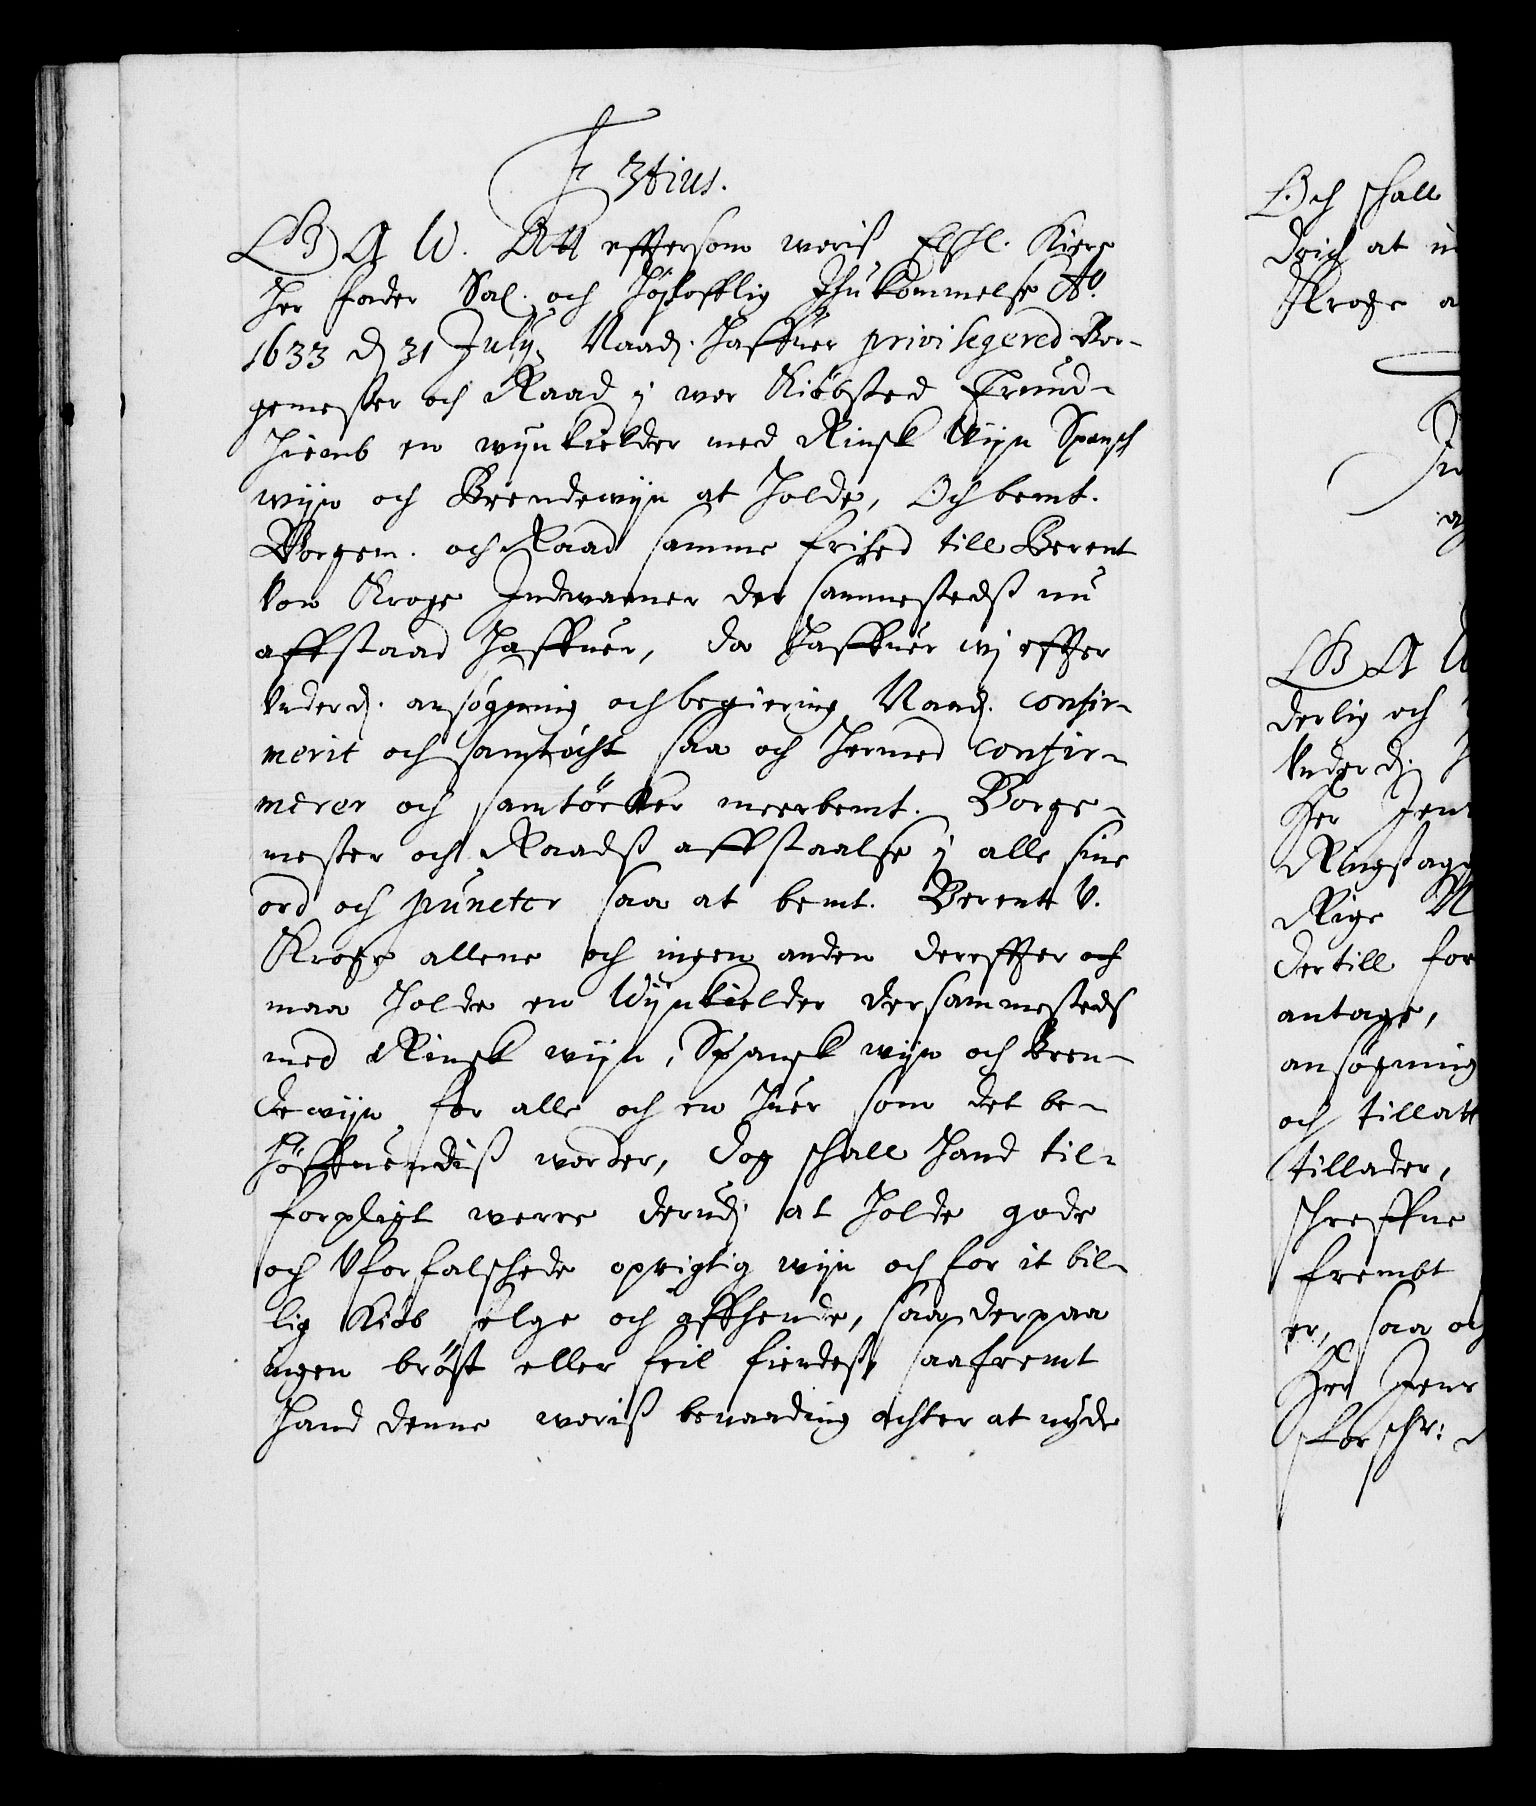 F 3tius.
G A W. Att efftersom woriß Elschl. Kiere
Her fader Sal. och Højlofflig Ihukommelse Ao.
1633 d 31 July, Naad. haffuer privilegered Bor-
gemester och Raad i wor Kiöbsted Trund-
hiemb en wynkielder med Rinsk Wijn Spansch
wijn och Brendewijn at holde, Och bemt.
Borgem. och Raad samme frihed till Berent
Von Kroge Indwaaner der sammestedß nu
affstaad haffuer, da haffuer wj effter
Underd. ansögning och begiering Naad. confir-
merit och samtöcht saa och hermed confir-
merer och samtöcker meerbemt. Borge-
mester och Raadß affstaalse i alle sine
ord och puncter saa at bemt. Berentt V.
Kroge allene och ingen anden dereffter och
maa holde en Wijnkielder dersammesteds
med Rinsk wijn, Spansk wijn och Bren-
dewijn for alle och en huer som det be-
höffuendiß worder, dog schall hand til-
forpligt werre derudj at holde gode
och Uforfalschede oprigtig wijn och for it bil-
lig Kiöb selge och affhende, saa derpaa
ingen bröst eller feil findeß, saafremt
hand denne woriß benaading achter at nyde
Och schall
drich at
Kroge
G A W
derlig och
Underd.
Her Jens
Ringstag
Rige N
dertill for
antage,
ansögning
och tillatt
tillader,
schreffue
frembt
er, saa och
Her Jens
for schr: